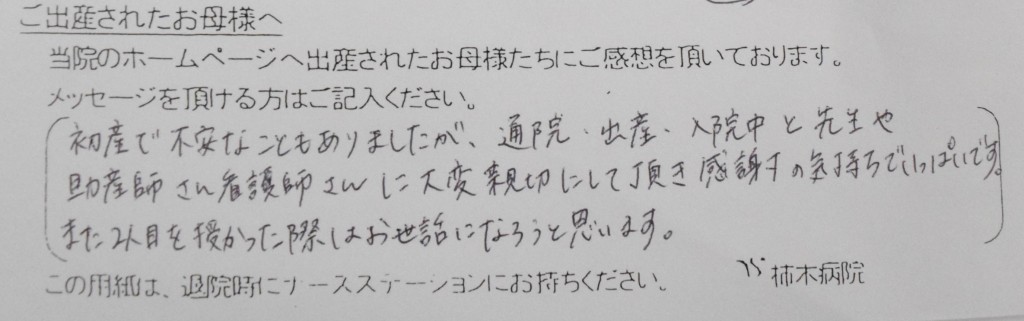 ご出産されたお母様へ
当院のホームページへ出産されたお母様たちにご感想を頂いております。
メッセージを頂ける方はご記入ください。
初産で不安なこともありましたが、通院・出産・入院中と先生や
助産師さん看護師さんに大変親切にして頂き感謝すの気持ちでいっぱいです。
また2人目を授かった際はお世話になろうと思います。
この用紙は、退院時にナースステーションにお持ちください。
柿木病院